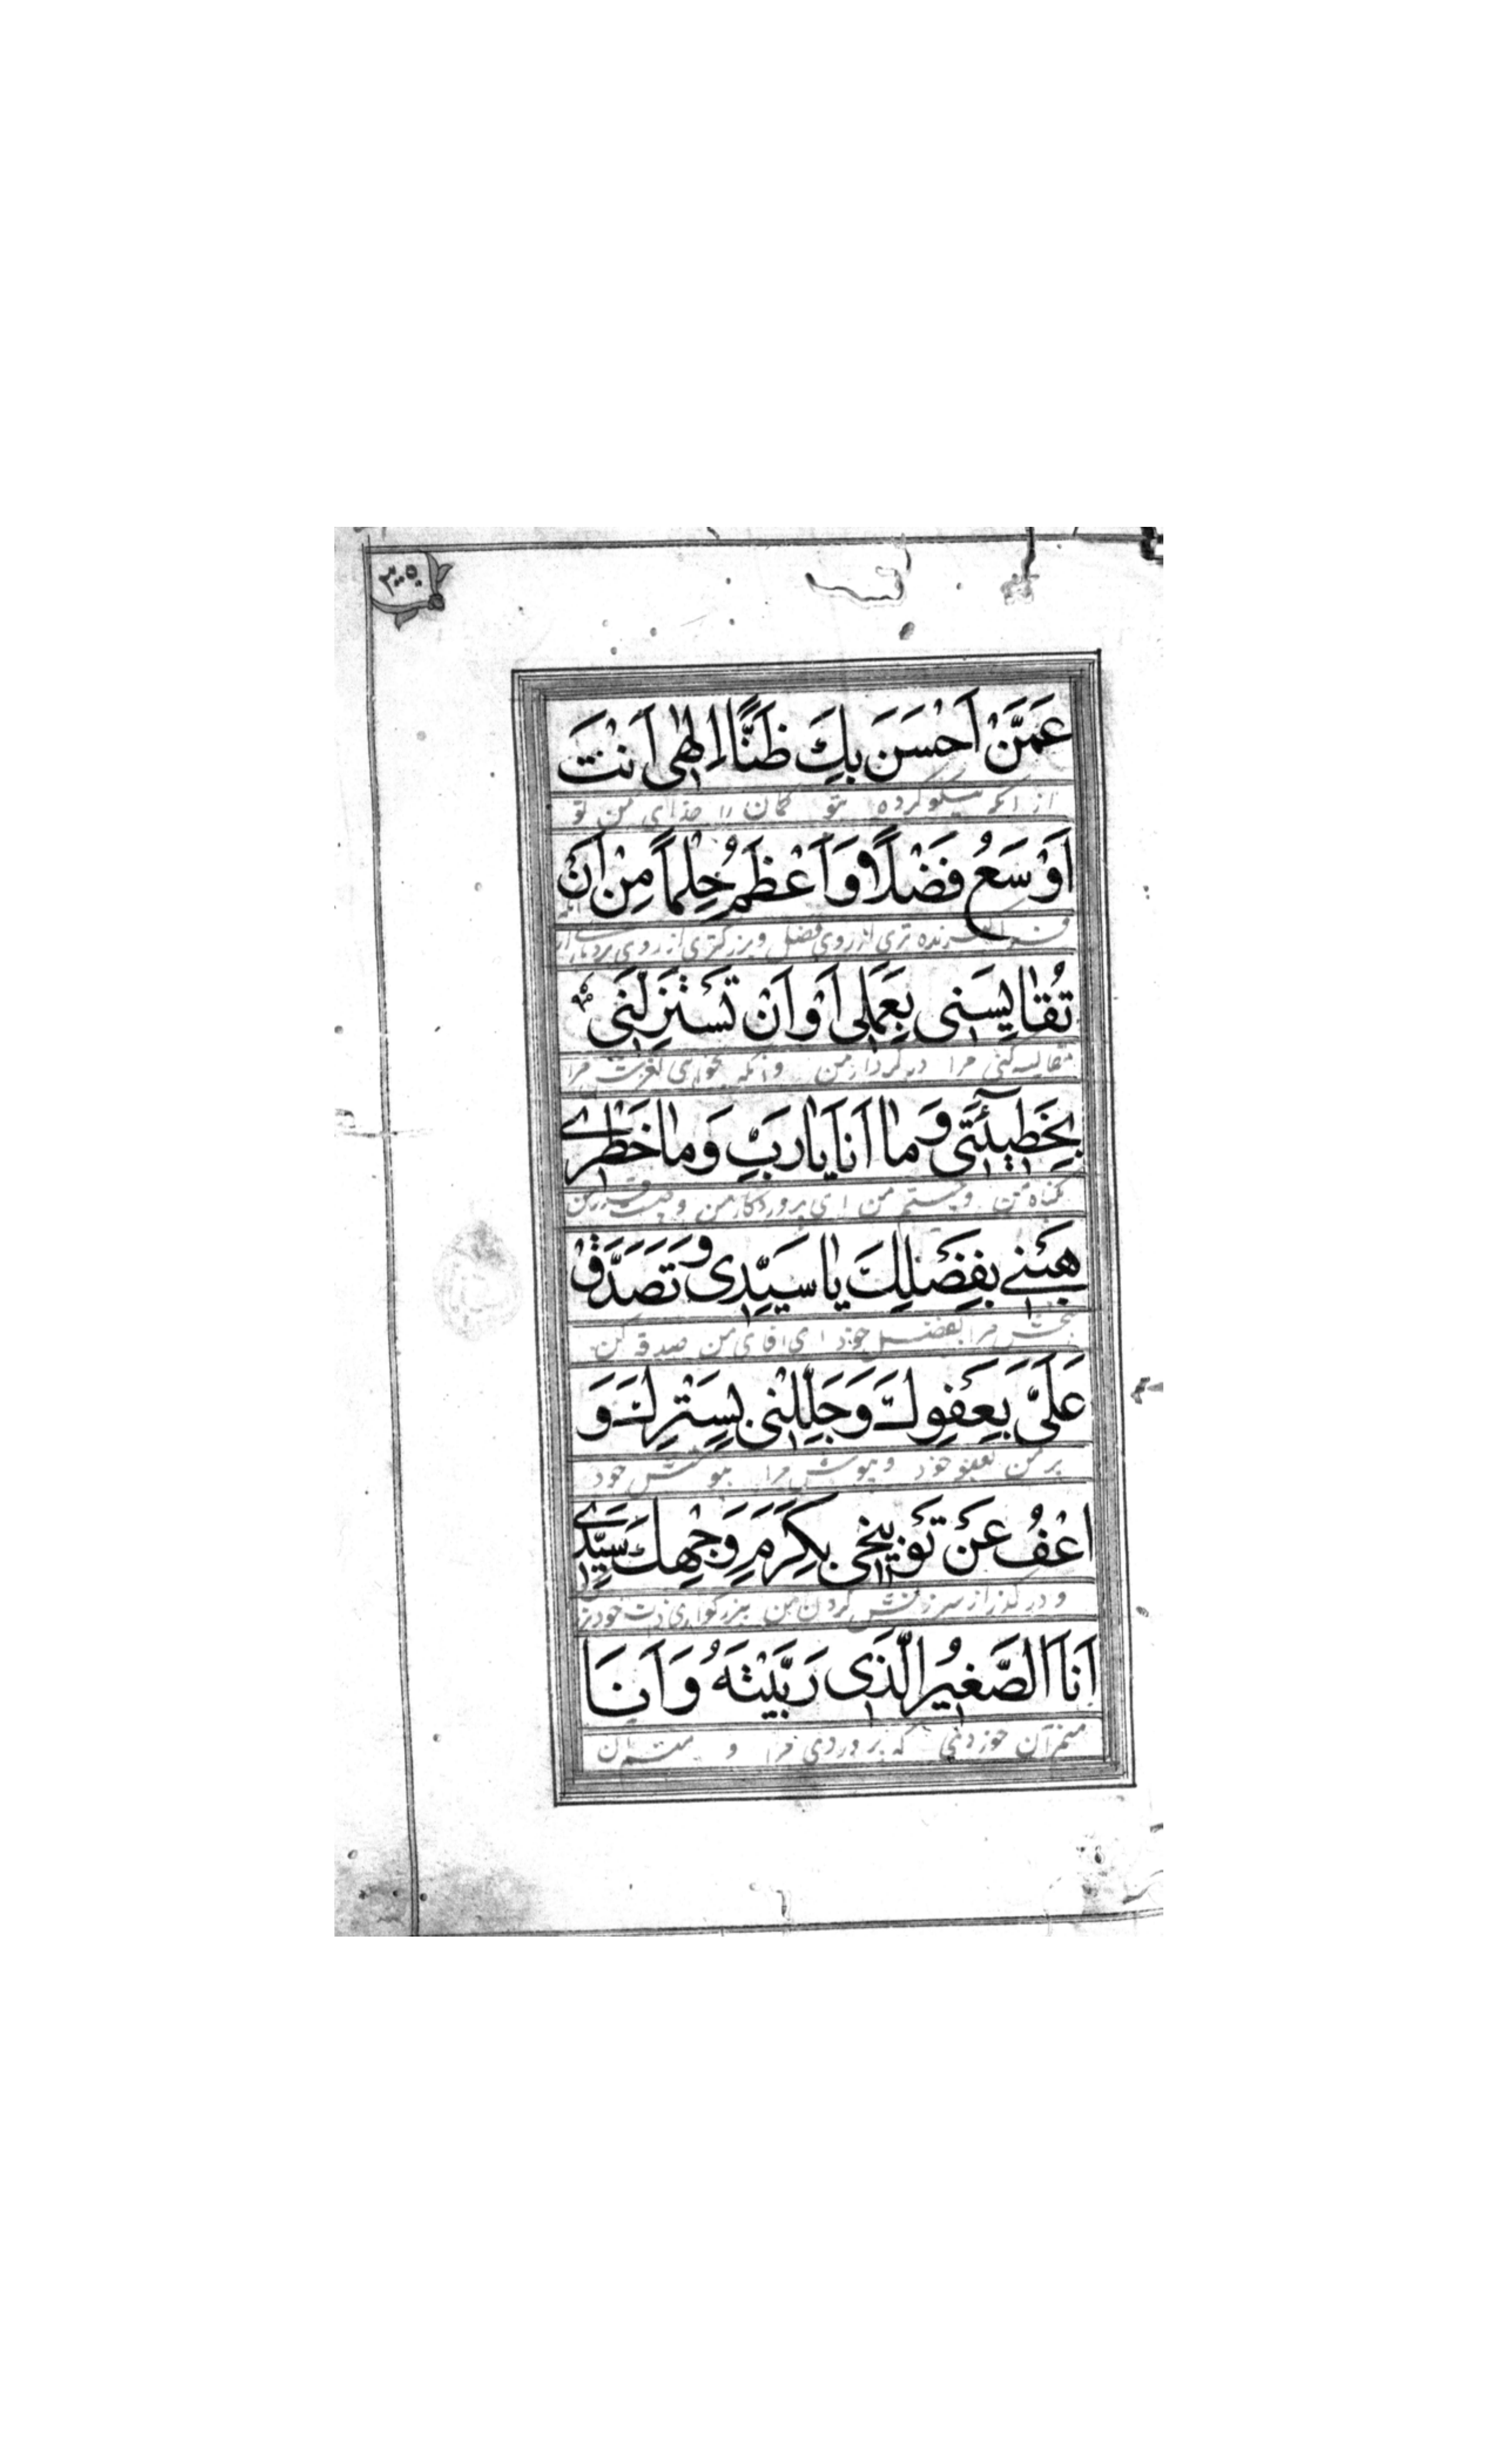 ۳۰۵
عَمَّنْ اَحْسَنَ بِكَ ظَنًّا اِلٰهى اَنْتَ
از انکه نیکو کرده بتو گمان را خدای من تو
اَوْسَعُ فَضْلًا وَاَعْظَمُ حِلْمًا مِنْ اَنْ
زنده تری از روی فضل و بزرگتری از روی بردباری از
تُقٰايِسَنى بِعَمَلى اَوْ اَنْ تَسْتَزِلَّنى
مقایسه کنی مرا در کردار من وانکه بخواهی لغزش مرا
بِخَطيۤئَتى وَ مٰا اَنَا يٰا رَبِّ وَمٰا خَطَرى
بگناه من و چیستم من ای پروردگار من و چیست قدر من
هَبْنى بِفَضْلِكَ يٰا سَيِّدى وَ تَصَدَّقْ
ببخش مرا بفضل خود ای اقای من صدقه کن
عَلَىَّ بِعَفْوِكَ وَجَلِّلْنى بِسَتْرِكَ وَ
بر من بعفو خود و بپوش مرا بپوشش خود
اعْفُ عَنْ تَوْبيخى بِكَرَمِ وَجْهِكَ سَيِّدى
و در گذر از سرزنش کردن من ببزرگواری ذات خود
اَنَا الصَّغيرُ الَّذى رَبَّيْتَهُ وَاَنَا
منم آن خوردی که پروردی مرا و منم آن